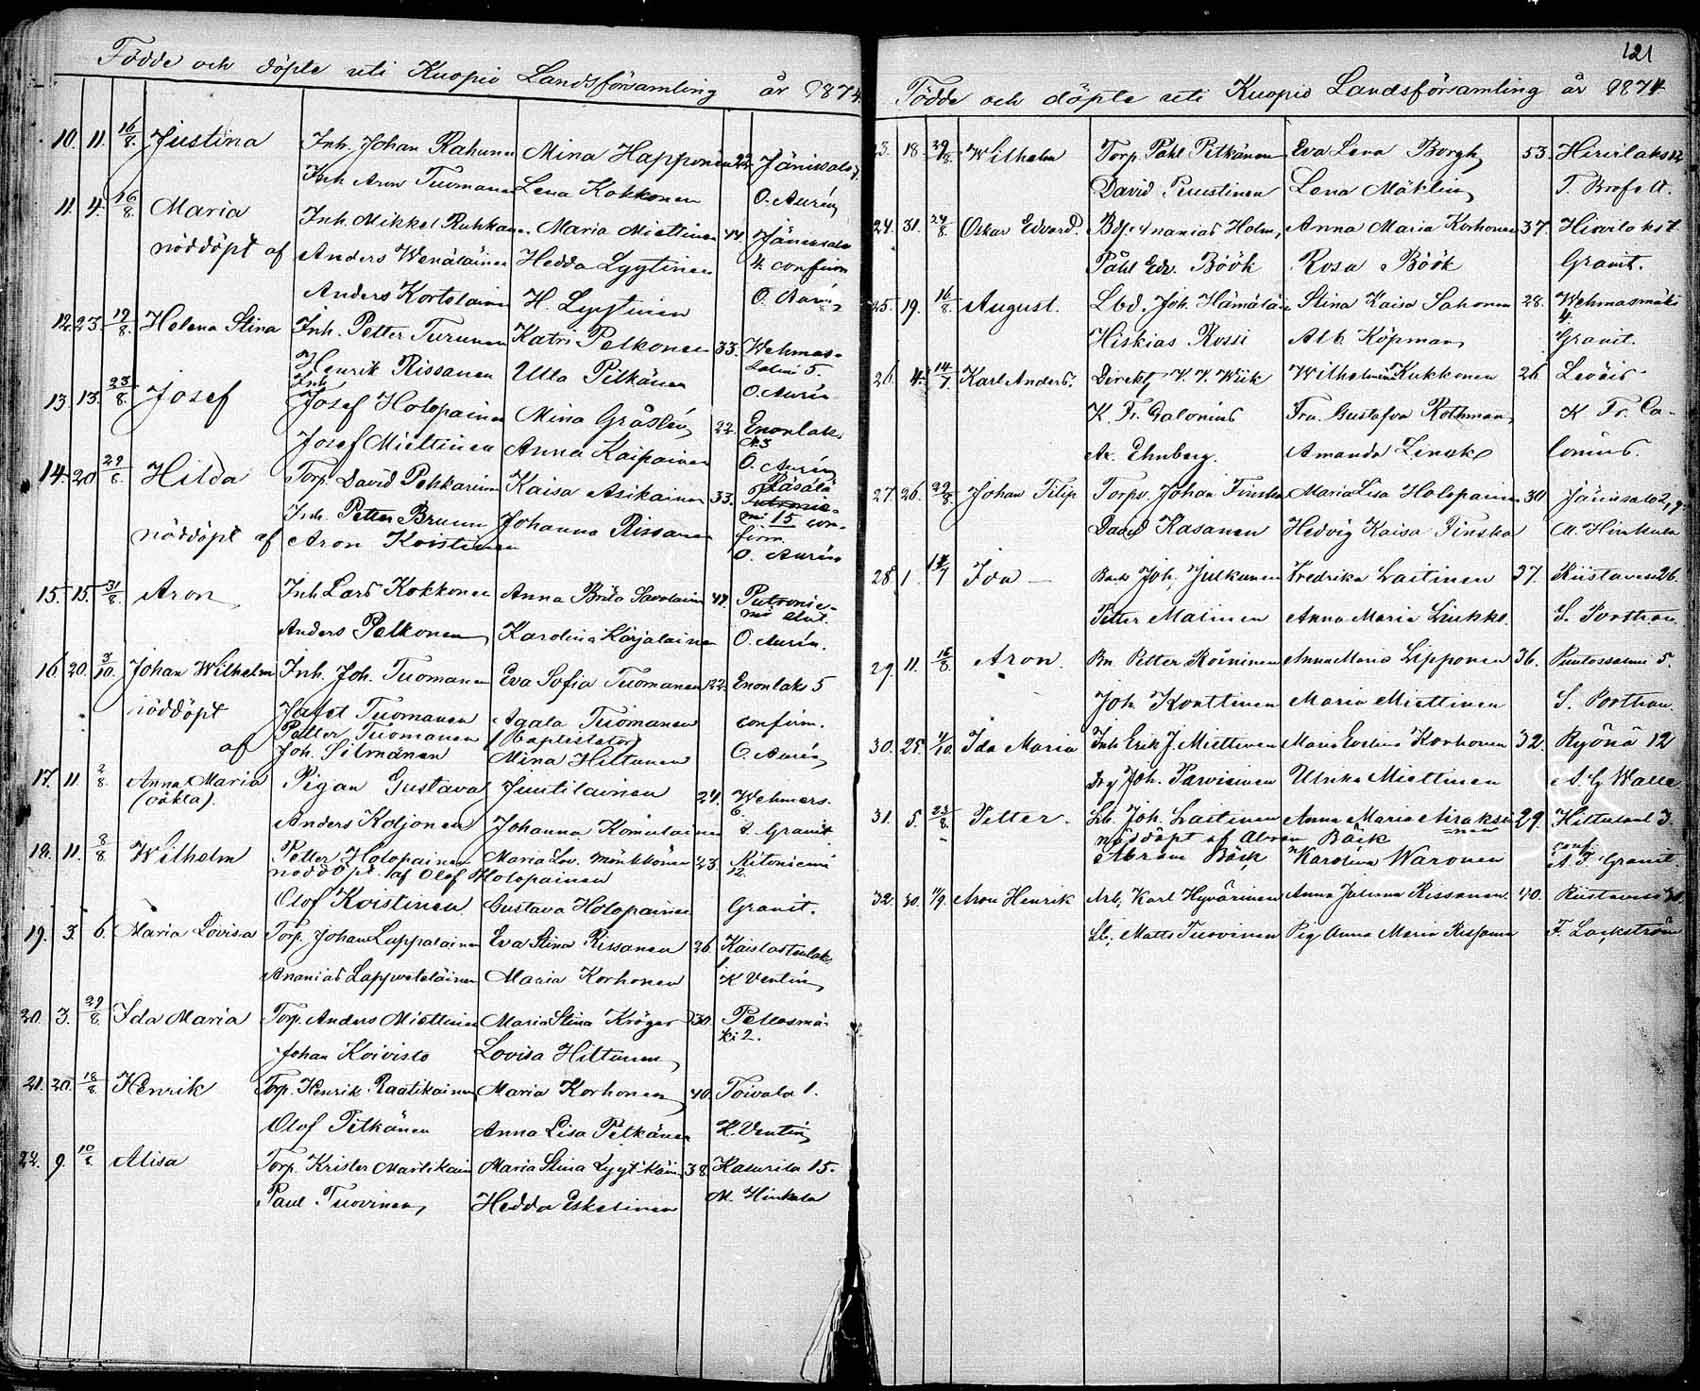 Födde och döpte uti Kuopio Landsförsamling år 1874.
10. 11. 16/8. Justina Inh. Johan Rahunen Mina Happonen 22. Jänissalo 7.
Inh. Aron Tuomanen Lena Kokkonen O. Aurén
11. 4. 16/8. Maria Inh. Mikkel Ruhkanen Maria Miettinen 44. Jänissalo
nöddöpt af Anders Wenäläinen Hedda Lyytinen 4. confirm
Anders Kortelainen H. Lyytinen O. Aurén
12. 23. 19/8. Helena Stina Inh. Petter Turunen Katri Pelkonen 33. Wehmas-
Henrik Rissanen Ulla Pitkänen salmi 5.
O. Aurén
13. 13. 23/8. Josef Inh. Josef Holopainen Mina Gråsten 22. Enonlaks
Josef Miettinen Anna Kaipainen N:3
O. Aurén
14. 20. 29/8. Hilda Torp. David Pehkarinen Kaisa Asikainen 33. Räsälä
Inh. Petter Brunn Johanna Rissanen 15 con-
nöddöpt af Aron Koistinen firm.
O. Aurén
15. 15. 31/8. Aron Inh. Lars Kokkonen Anna Brita Savolainen 47. Putronie-
mi
Anders Pelkonen Karolina Karjalainen O. Aurén.
16. 20. 3/10. Johan Wilhelm Inh. Joh. Tuomanen Eva Sofia Tuomanen 22. Enonlaks 5
nöddöpt Jafet Tuomanen Agata Tuomanen confirm.
Petter Tuomanen (baptistator)
af Joh. Silmänen Mina Hiltunen O. Aurén
17. 11. 2/8. Anna Maria Pigan Gustava Juutilainen 24. Wehmers.
(oäkta). 6.
Anders Koljonen Johanna Komulainen A. Granit
18. 11. 8/8. Wilhelm Petter Holopainen Maria Lov. Mönkkönen 23. Ritoniemi
nöddöpt af Olof Holopainen 12
Olof Koistinen Gustava Holopainen Granit.
19. 3. 6. Maria Lovisa Torp. Johan Lappalainen Eva Stina Rissanen 26. Kaislastenlaks
Ananias Lappveteläinen Maria Korhonen K Ventin
20. 3. 29/8. Ida Maria Torp. Anders Miettinen Maria Stina Kröger 30. Pellosmä-
ki 2.
Johan Koivisto Lovisa Hiltunen
21. 20. 18/8. Henrik Torp. Henrik Raatikainen Maria Korhonen 40. Toivala 1.
Olof Pitkänen Anna Lisa Pitkänen K. Ventin
22. 9. 10/8 Alisa Torp. Krister Martikain Maria Stina Lyytikäin 38 Kasurila 15.
Paul Tuovinen Hedda Eskelinen M. Hinkula
121
Födde och döpte uti Kuopio Landsförsamling år 1874
23. 18. 29/8. Wilhelm Torp. Påhl Pitkänen Eva Lena Borgh 53. Hirvilaks 12
David Puustinen Lena Mäklin T. Brofelt.
24. 31. 24/8. Oskar Edvard. Bdf. Ananias Holm, Anna Maria Korhonen 37. Hirvilaks 7.
Påhl Edv. Böök Rosa Böök Granit.
25. 19. 16/8. August. Lbd. Joh. Hämäläin Stina Kaisa Sahonen 28. Wehmasmäki
4.
Hiskias Rossi Alb. Köpman Granit.
26. 4. 14/7. Karl Anders. Direkt. V. V. Wiik Wilhelmina Kukkonen 26 Leväis
K. Fr. Calonius Fru. Gustafva Rothman K Fr. Ca-
Ax. Ehnberg. Amanda lonius.
27. 26. 29/8. Johan Filip Torpv. Johan Finska Maria Lisa Holopainen 30 Jänissalo 2,
David Kasanen Hedvig Kaisa Finska M. Hinkula
28. 1. /7 Ida — Joh. Julkunen Fredrika Laitinen 37. Riistavesi 26.
Petter Malinen Anna Maria Liukko. S. Porthan.
29. 11. 16/8. Aron. Bn. Petter Roininen Anna Maria Lipponen 36. Puutossalmi 5.
Joh. Konttinen Maria Miettinen S. Porthan.
30. 25. 4/10. Ida Maria Inh. Erik J. Miettinen Maria Evelina Korhonen 32. Ryönä 12
Drg Joh. Parviainen Ulrika Miettinen A. G Walle
31. 5. 23/8. Petter. Lb. Joh. Laitinen Anna Maria Airaksi 29. Hiltulanl 3.
nöddöpt af Abram Bäck nen conf.
Abram Bäck Karolina Waronen A. F. Granit
32. 30. 11/9. Aron Henrik Arb. Karl Hyvärinen Anna Juliana Rissanen. 40. Riistavesi
Lb. Matts Tuovinen Pig Anna Maria Rissanen F. Lackström